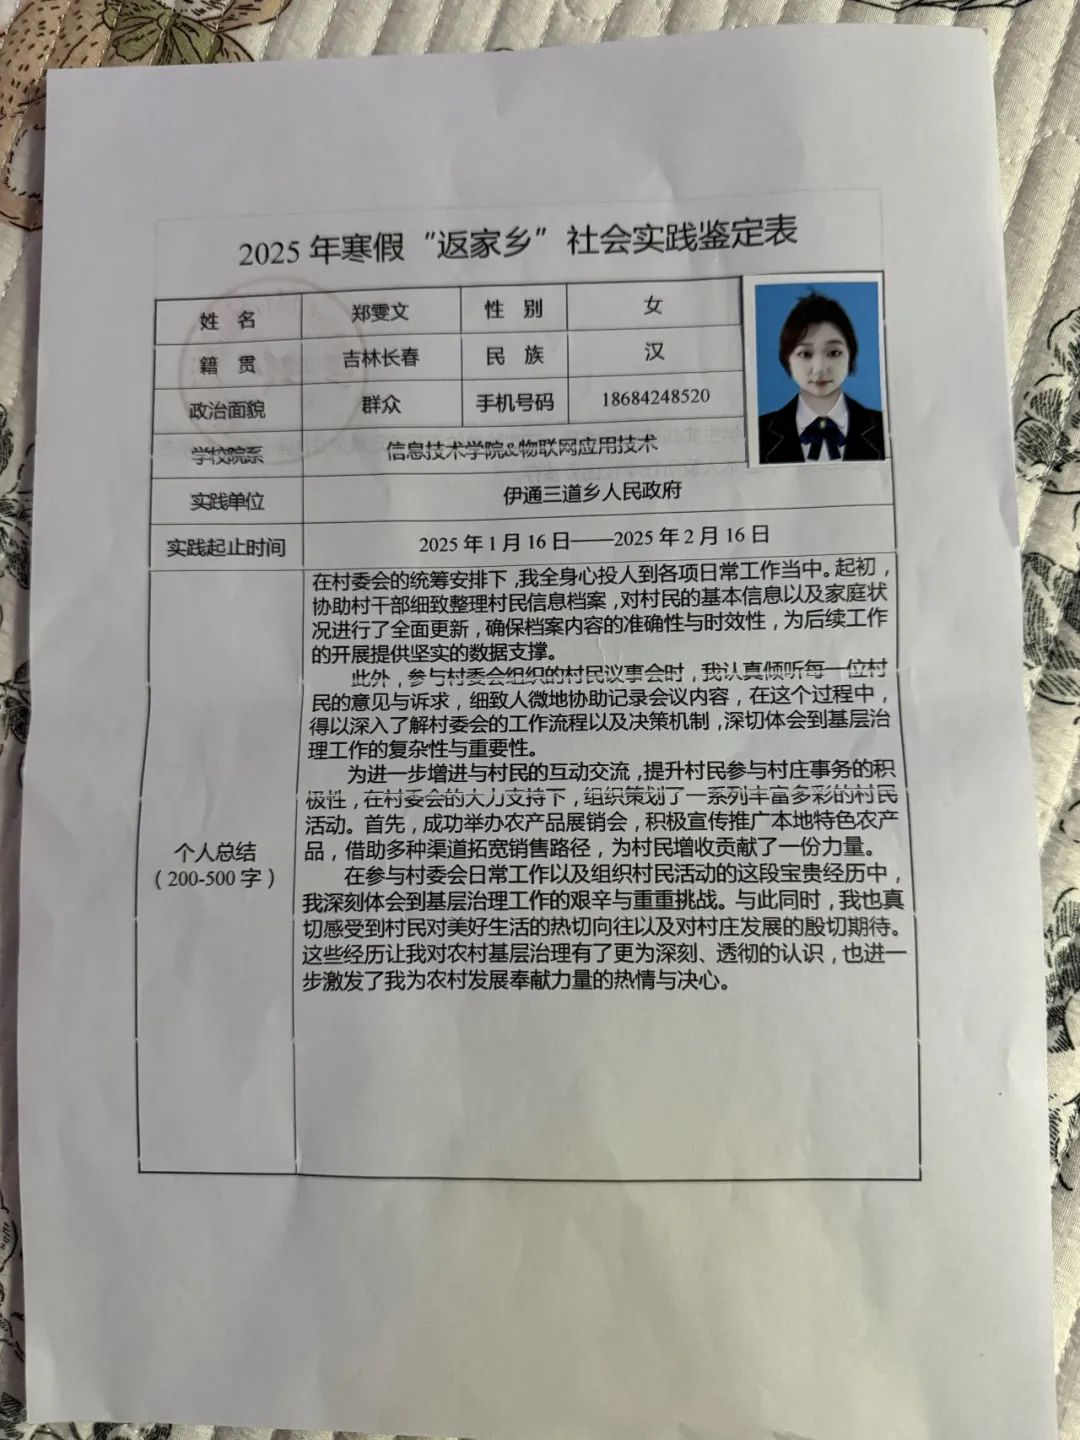 2025 年寒假“返家乡”社会实践鉴定表
姓 名 郑雯文 性 别 女
籍 贯 吉林长春 民 族 汉
政治面貌 群众 手机号码 18684248520
学校院系 信息技术学院&物联网应用技术
实践单位 伊通三道乡人民政府
实践起止时间 2025 年 1 月 16 日——2025 年 2 月 16 日
个人总结
(200-500 字)
在村委会的统筹安排下,我全身心投人到各项日常工作当中。起初,
协助村干部细致整理村民信息档案,对村民的基本信息以及家庭状
况进行了全面更新,确保档案内容的准确性与时效性,为后续工作
的开展提供坚实的数据支撑。
此外,参与村委会组织的村民议事会时,我认真倾听每一位村
民的意见与诉求,细致人微地协助记录会议内容,在这个过程中,
得以深入了解村委会的工作流程以及决策机制,深切体会到基层治
理工作的复杂性与重要性。
为进一步增进与村民的互动交流,提升村民参与村庄事务的积
极性,在村委会的大力支持下,组织策划了一系列丰富多彩的村民
活动。首先,成功举办农产品展销会,积极宣传推广本地特色农产
品,借助多种渠道拓宽销售路径,为村民增收贡献了一份力量。
在参与村委会日常工作以及组织村民活动的这段宝贵经历中,
我深刻体会到基层治理工作的艰辛与重重挑战。与此同时,我也真
切感受到村民对美好生活的热切向往以及对村庄发展的殷切期待。
这些经历让我对农村基层治理有了更为深刻、透彻的认识,也进一
步激发了我为农村发展奉献力量的热情与决心。